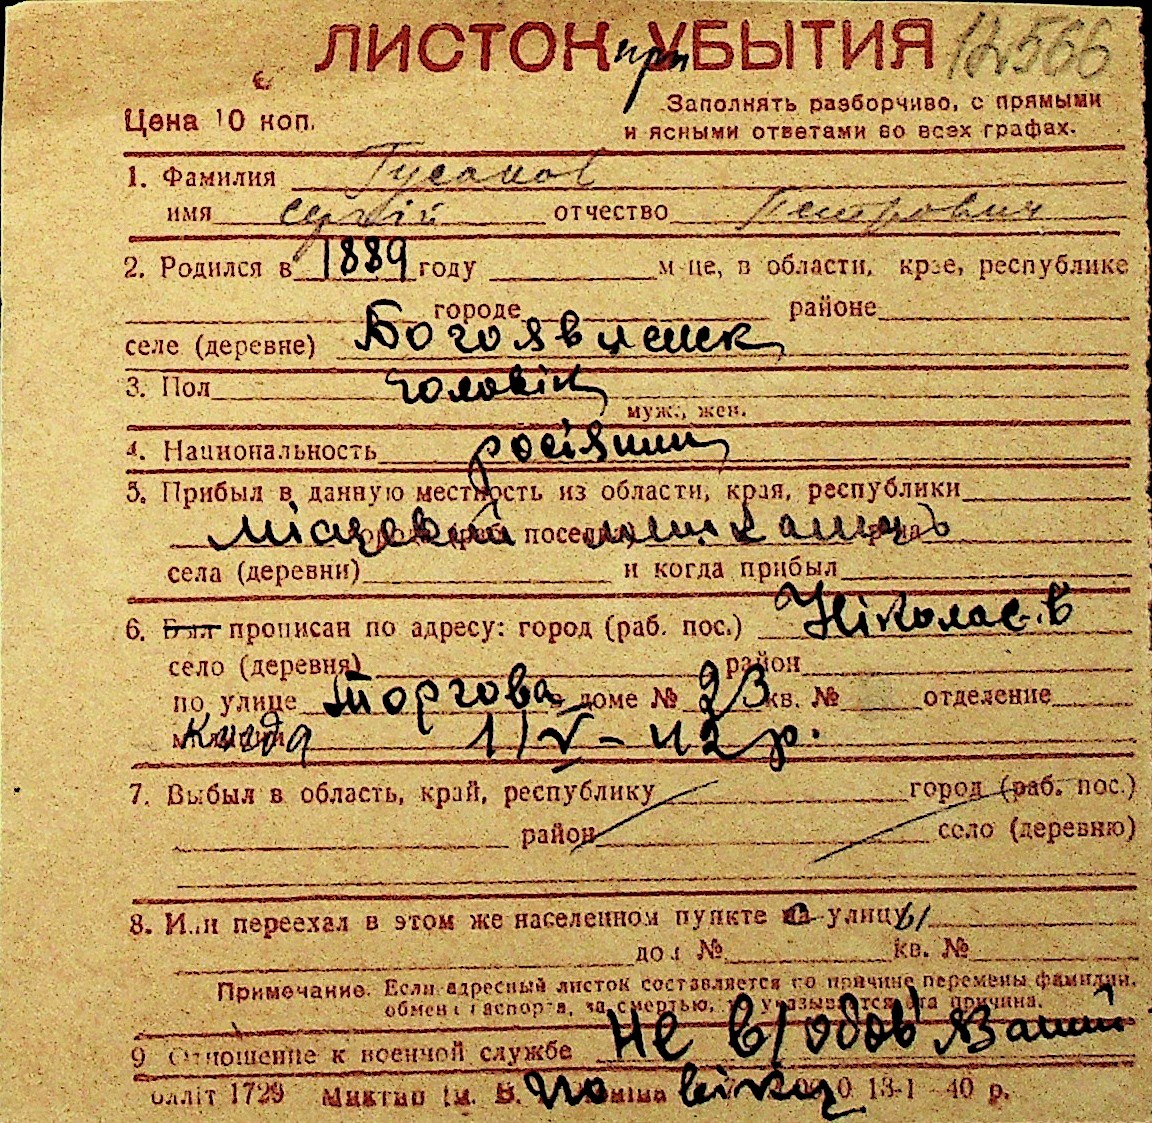 ЛИСТОК при УБЫТИЯ 12566
Цена 10 коп.
Заполнять разборчиво, с прямыми
и ясными ответами во всех графах.
1. Фамилия Гусаков
имя Сергій отчество Петрович
2. Родился в 1889 году м-це, в области, крае, республике
городе районе
селе (деревне) Богоявленск
3. Пол чоловік
муж., жен.
4. Национальность росіянин
5. Прибыл в данную местность из области, края, республики
місцевий поселка мешканець
села (деревни) и когда прибыл
6. Был прописан по адресу: город (раб. пос.) Ніколаєв
село (деревня) район
по улице Торгова в доме № 23 кв. № отделение
1/V-42 р.
7. Выбыл в область, край, республику город (раб. пос.)
район село (деревню)
8. Или переехал в этом же населенном пункте улицы
дом № кв. №
Примечание. Если адресный листок составляется по причине перемены фамилии,
обмена паспорта, за смертью, то указывается эта причина.
9 Отношение к военной службе Не в/обов'язаний
олліт 1729 ім. В. по віку 13-1 40 р.